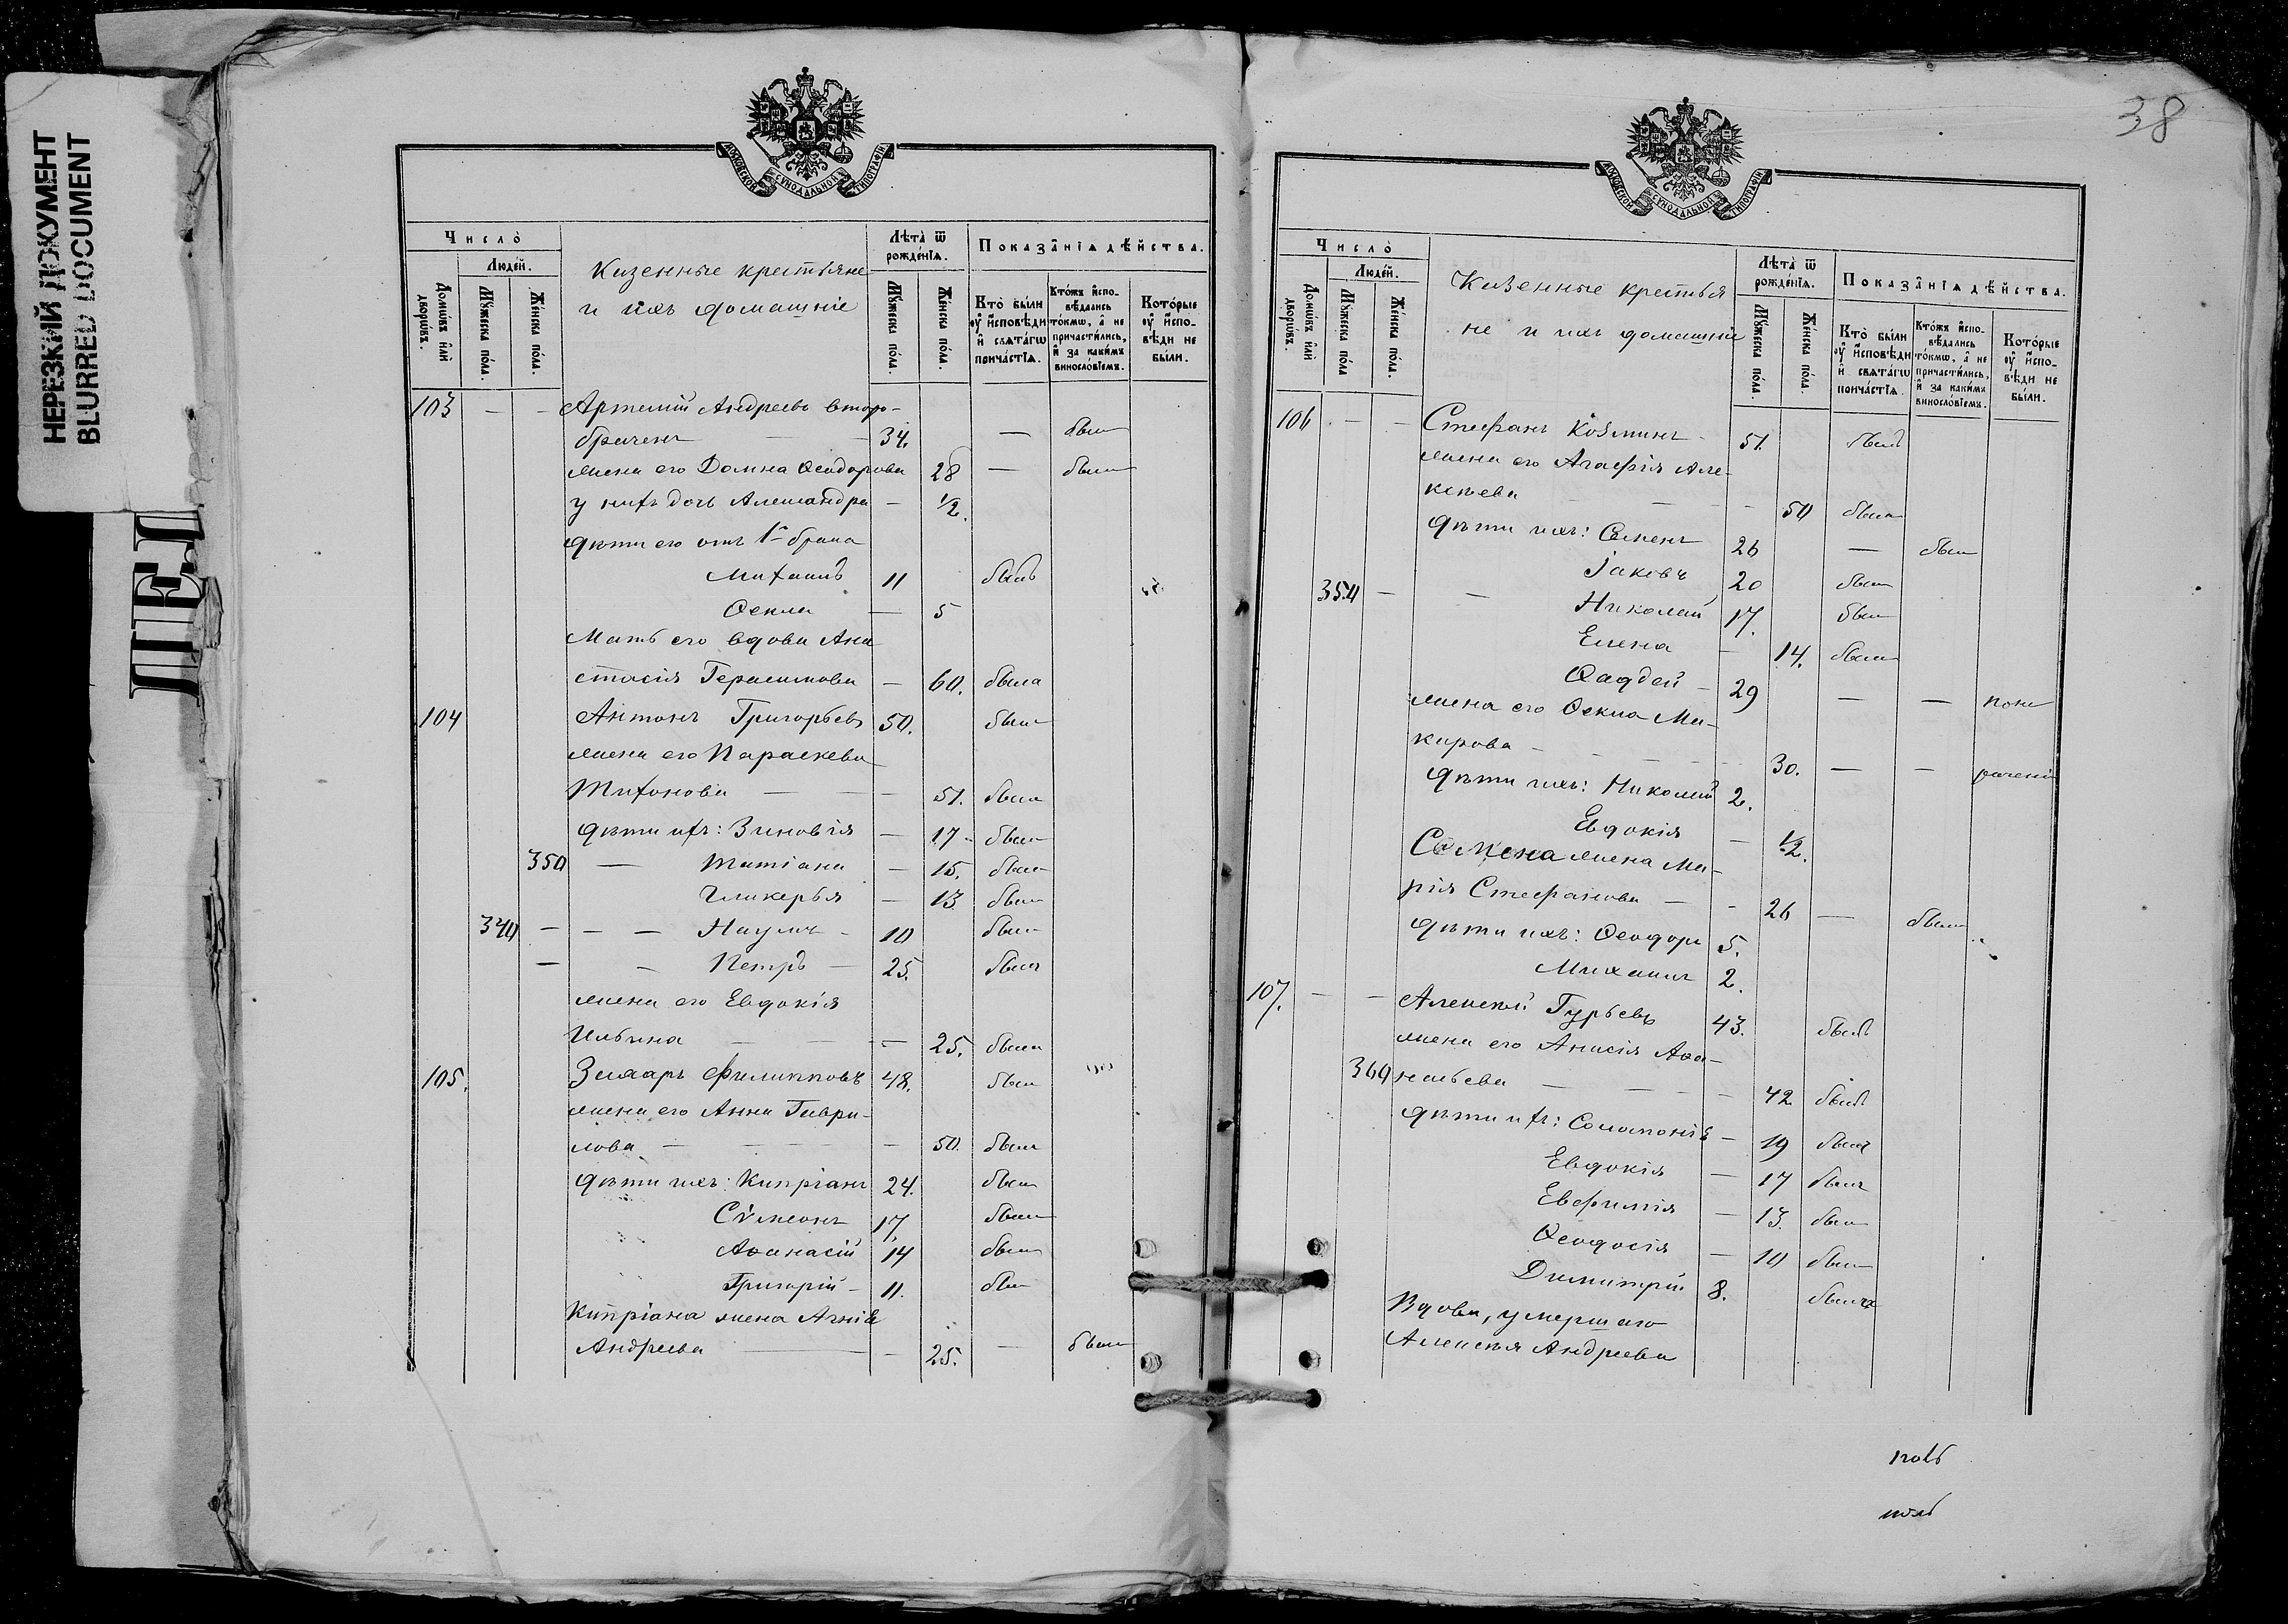 НЕРЕЗКИЙ ДОКУМЕНТ
BLURRED DOCUMENT
38
МОСКОВСКОЙ СѴНОДАЛЬНОЙ ТИПОГРАФІИ
Число̀
Людей.
Домѡвъ и҆лѝ дворѡвъ.
Мꙋ́жеска по́ла.
Же́нска по́ла.
Казенные крестьяне
и ихъ домашніе
Лѣта̀ ѿ рождѐнїѧ.
Мꙋ́жеска по́ла.
Же́нска по́ла.
Показа̑нїѧ дѣ́йства.
Кто̀ бы́ли ᲂу҆ и҆сповѣди и҆ свѧта́гѡ прича́стїѧ.
Кто́жъ и҆спо-
вѣдались
то́кмѡ, а҆ не
причасти́лись,
и҆ за каки́мъ
винослові́емъ.
Кото́рые ᲂу҆ и҆спо-
вѣди не
бы́ли.
103 — — Артемій Андреевъ второ-
браченъ — 34. — былъ
жена его Домна Ѳеодорова 28 — была
у нихъ дочь Александра — 1/2.
дѣти его отъ 1го брака
Михаилъ 11 былъ
Ѳекла — 5
Мать его вдова Ана
стасія Герасимова — 60. была
104 Антонъ Григорьевъ 50. былъ
жена его Параскева
Тихоновна — — 51. была
дѣти ихъ: Зиновія — 17. была
350 — Татіана — 15. была
Гликерья — 13 была
340 — — — Наумъ — 10 былъ
— — Петръ — 25. былъ
жена его Евдокія
Ильина — — — 25. была
105. Филипповъ 48. былъ
жена его Анна Гаври-
лова — — — — 50. была
дѣти ихъ: Кипріанъ 24. былъ
Сѵмеонъ 17. былъ
Аѳанасій 14 былъ
Григорій — 11. былъ
Кипріана жена
Андреева — — 25. — была
МОСКОВСКОЙ СѴНОДАЛЬНОЙ ТИПОГРАФІИ
Число̀
Людей.
Домѡвъ и҆лѝ дворѡвъ.
Мꙋ́жеска по́ла
Же́нска по́ла.
Казенные крестья
не и ихъ домашніе
Лѣта̀ ѿ рождѐнїѧ.
Мꙋ́жеска по́ла.
Же́нска по́ла.
Показа̑нїѧ дѣ́йства.
Кто̀ бы́ли ᲂу҆ и҆сповѣди и҆ свѧта́гѡ прича́стїѧ.
Кто́жъ и҆спо-
вѣдались
то́кмѡ, а҆ не
причасти́лись,
и҆ за каки́мъ
винослові́емъ.
Кото́рые ᲂу҆ и҆спо-
вѣди не
бы́ли.
106 — — Стефанъ Козминъ — 51. былъ
жена его Агафія Але-
ксѣева — — — 50 была
дѣти ихъ: Семенъ 26 — былъ
Іаковъ 20 былъ
350 — — Николай 17. былъ
Елена — 14. была
Ѳаддей — 29 — —
жена его Ѳекла Ма-
карова — — — 30. — —
дѣти ихъ: Николай 2.
Евдокія — 1/2.
Семена жена Ма-
рія Стефанова — — 26 — была
дѣти ихъ: Ѳеодоръ 5.
Михаилъ 2.
107. — — Алексѣй Гурьевъ 43. былъ
жена его Анисія Ана-
360 ньева — — — 42 была
дѣти ихъ: Соломонія — 19 была
Евдокія — 17 была
Евфимія — 13. была
Ѳеодосія — 10 была
Димитрій 8. былъ
Вдова, умершаго
Алексѣя Андреева